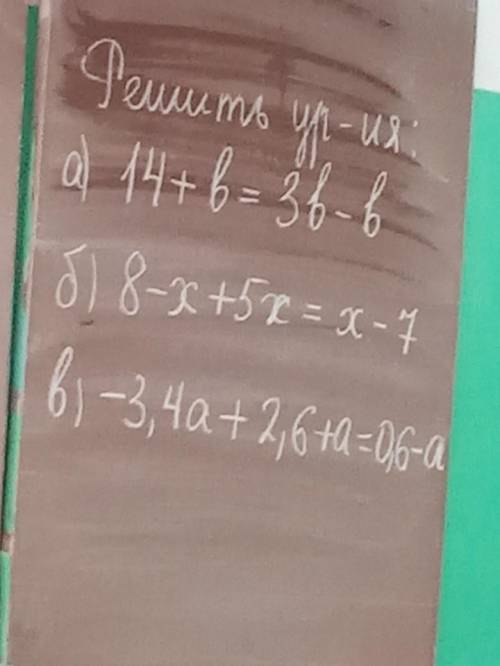 Решить ур-ия:
а) 14+b=3b-b
б) 8-x+5x=x-7
в) -3,4a+2,6+a=0,6-a